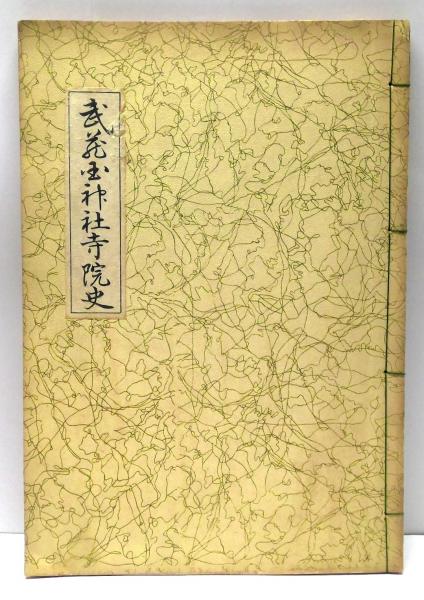 武蔵国神社寺院史